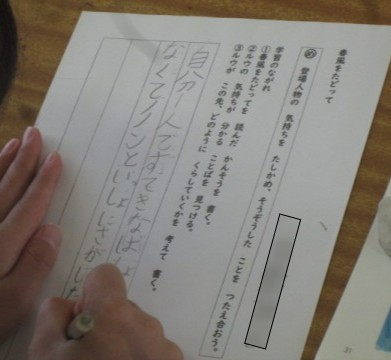 春風をたどって
め 登場人物の 気持ちを たしかめ、そうぞうした ことを つたえ合おう。
学習のながれ
①春風をたどってを 読んだ かんそうを 書く。
②ルウの 気持ちが 分かる ことばを 見つける。
③ルウが この先、どのように くらしていくかを 考えて 書く。
自分一人ですてきなばしょ
なくてノノンといっしょにさがした